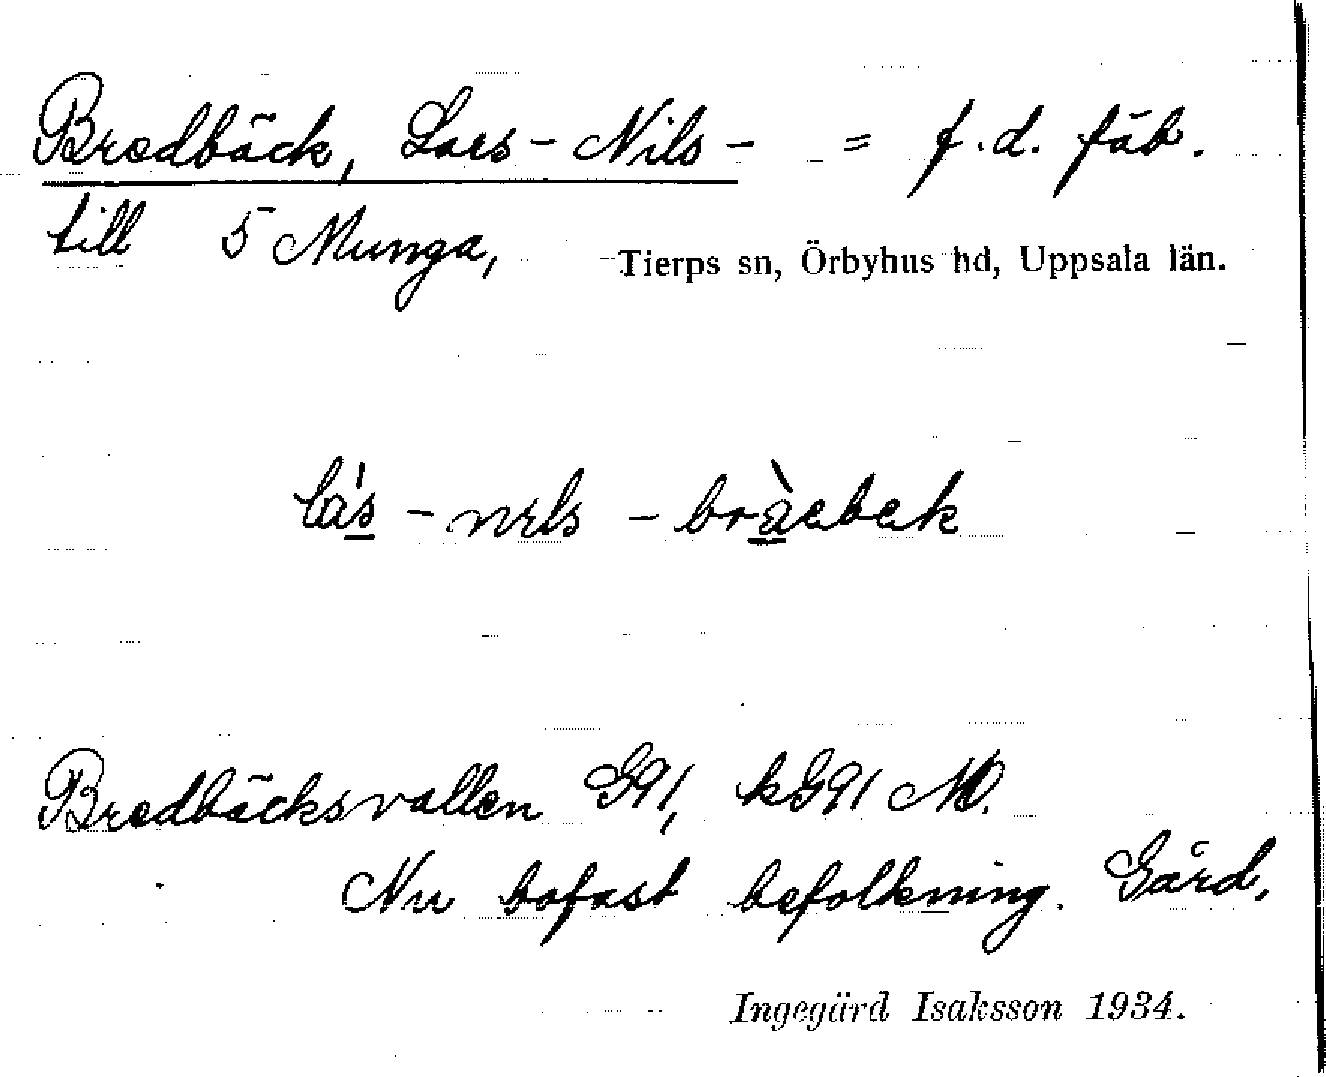 Bredbäck, Lars-Nils- = f.d. fäb.
till 5 Munga, Tierps sn, Örbyhus hd, Uppsala län.
lás - nɪls - bràebek
Bredbäcksvallen G91, kG91 MO.
Nu bofast befolkning. Gård.
Ingegärd Isaksson 1934.